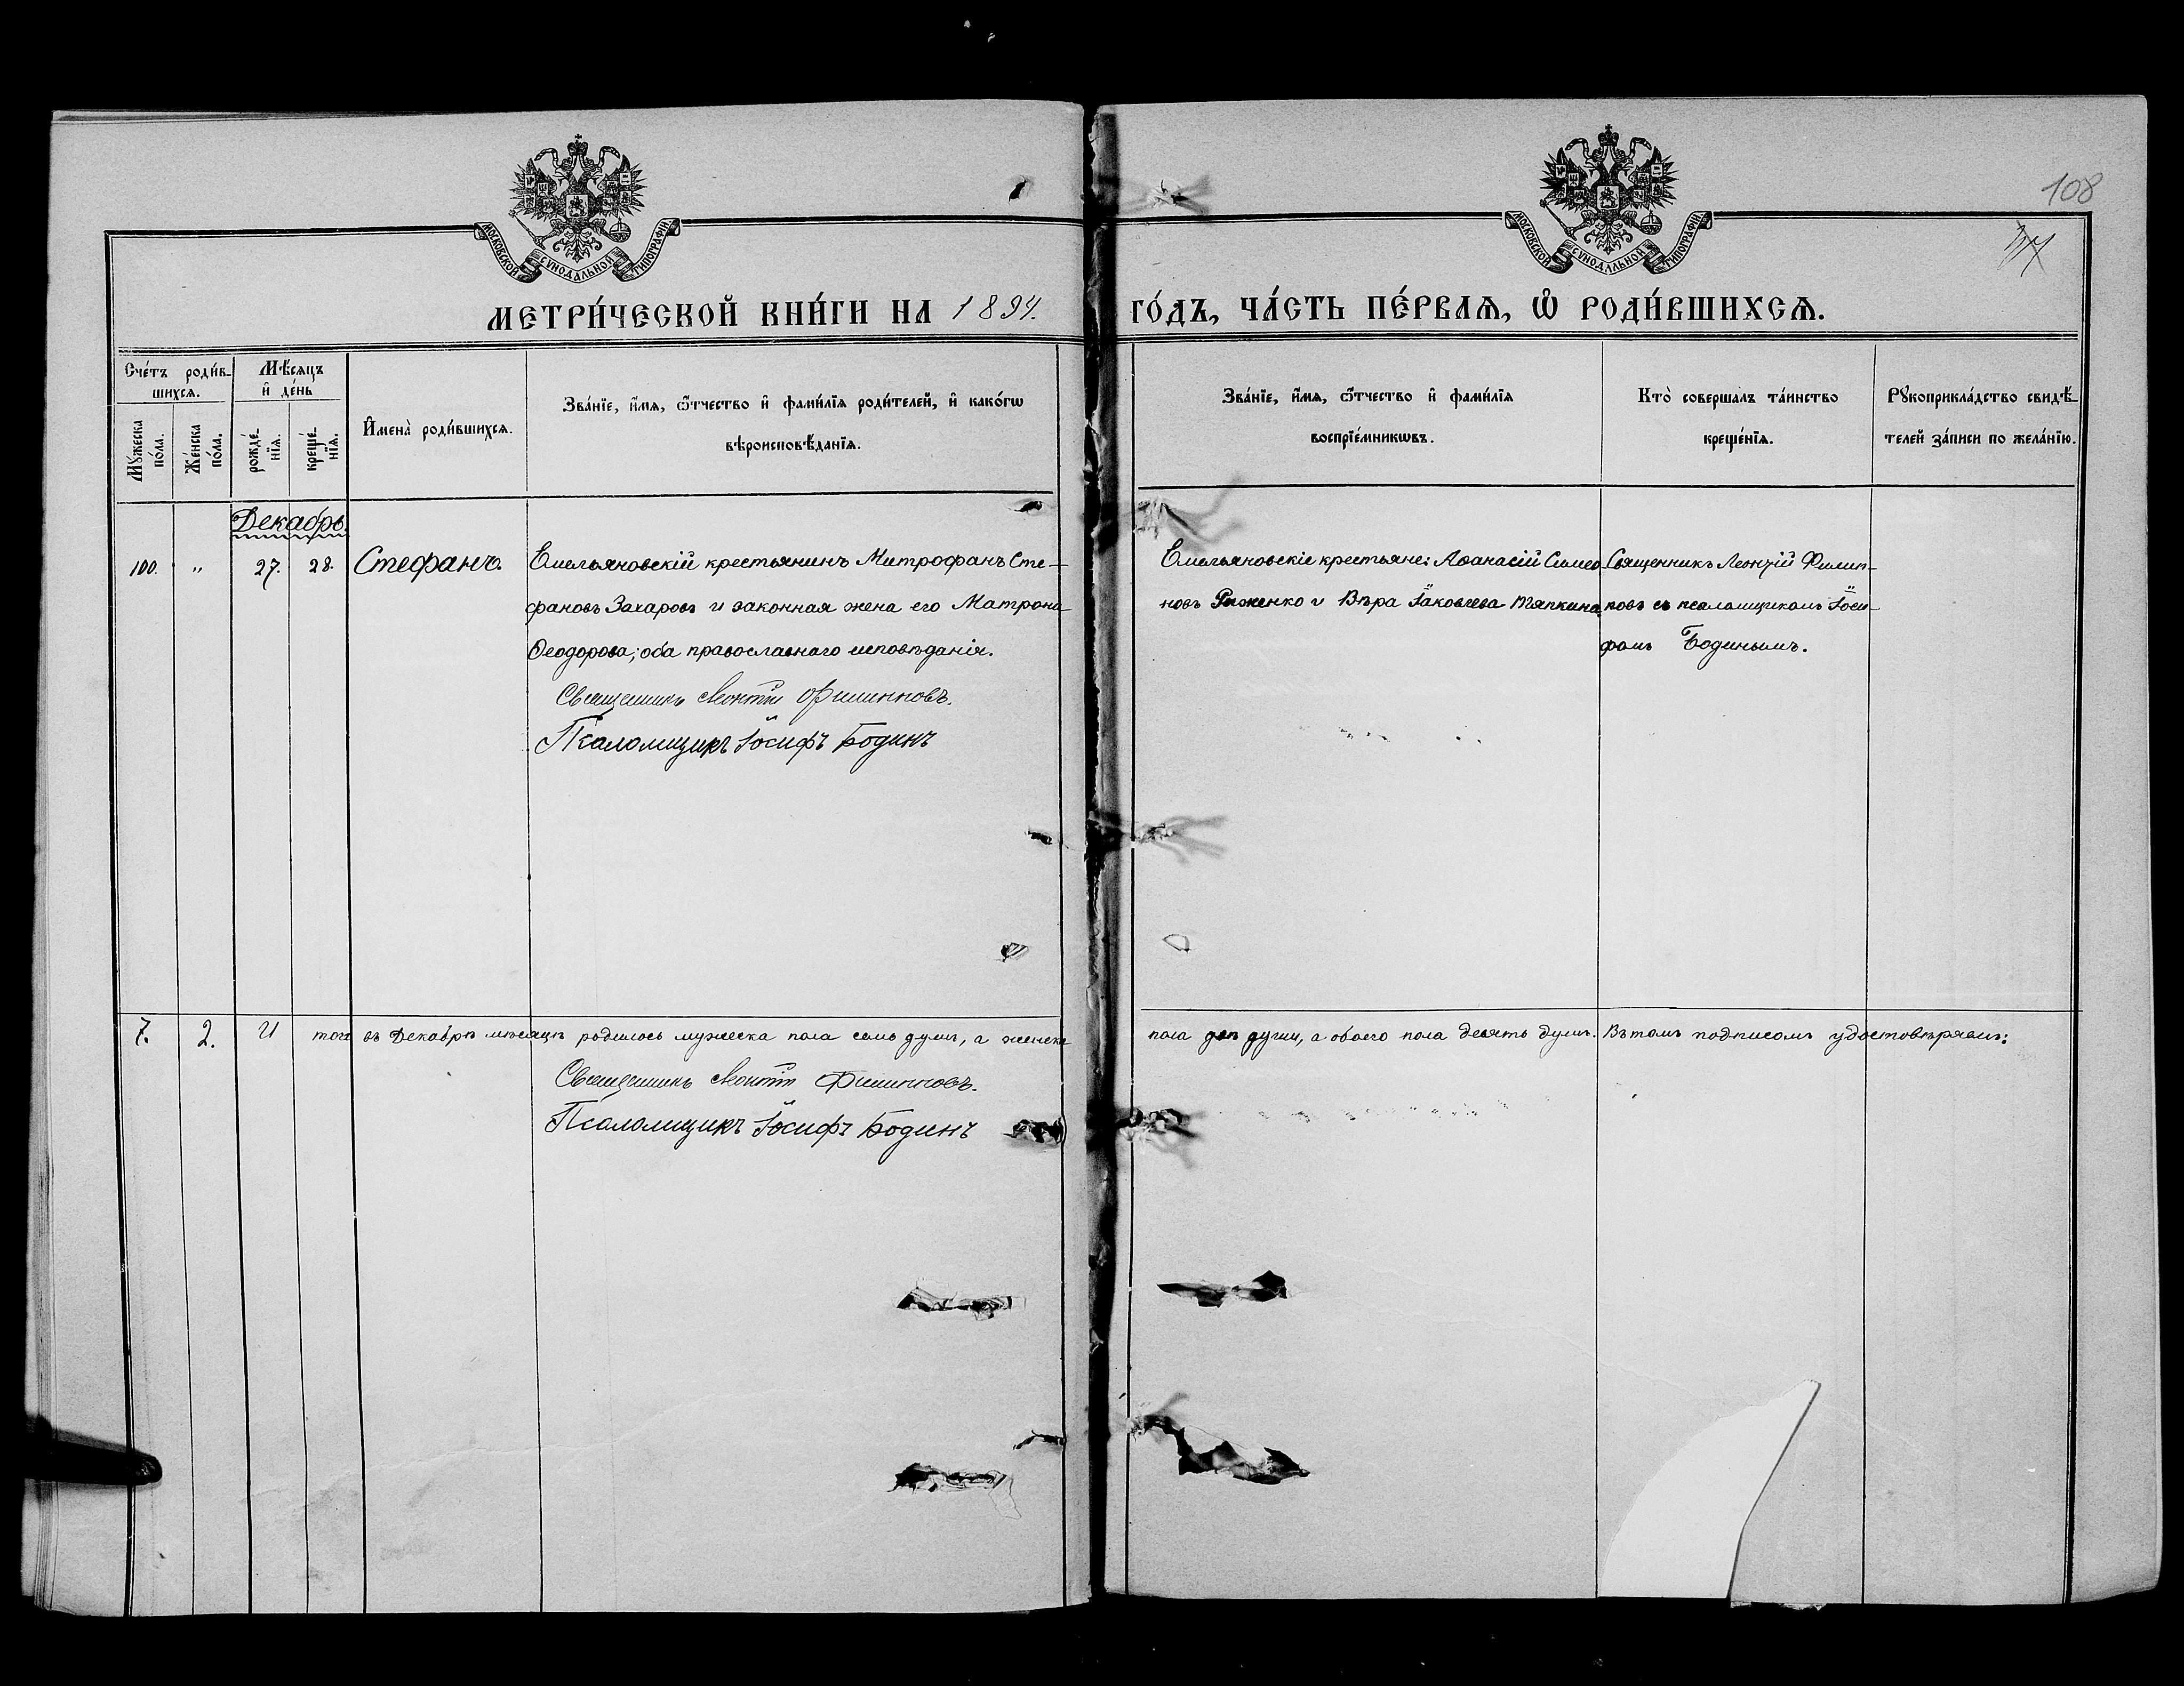 108
МОСКОВСКОЙ СѴНОДАЛЬНОЙ ТИПОГРАФІИ
МОСКОВСКОЙ СѴНОДАЛЬНОЙ ТИПОГРАФІИ
МЕТРИ́ЧЕСКОЙ КНИ́ГИ НА 1894. ГО́ДЪ, ЧА́СТЬ ПЕ́РВАѦ, Ѡ҆ РОДИ́ВШИХСѦ.
Сче́тъ роди́в-
шихсѧ.
Мꙋ́жеска по́ла.
Же́нска по́ла.
Мѣ́сѧцъ
и҆ де́нь
рожде́-
нїѧ.
креще́-
нїѧ.
И҆мена̀ роди́вшихсѧ.
Зва́нїе, и҆́мѧ, ѻ҆́тчество и҆ фами́лїѧ роди́телей, и҆ како́гѡ
вѣроисповѣ́данїѧ.
Зва́нїе, и҆́мѧ, ѻ҆́тчество и҆ фами́лїѧ
воспрїе́мникѡвъ.
Кто̀ совершалъ та́инство
креще́нїѧ.
Рꙋкоприкла́дство свидѣ́-
телей за́писи по жела́нїю.
Декабрь.
100. " 27. 28. Стефанъ. Емельяновскій крестьянинъ Митрофанъ Сте-
фановъ Захаровъ и законная жена его Матрона
Ѳеодорова; оба православнаго исповѣданія.
Священникъ Леонтій Филипповъ.
Псаломщикъ Іосифъ Бодинъ
Емельяновскіе крестьяне: Аѳанасій Симео
новъ Рыженко и Вѣра Іаковлева Тяпкина
Священникъ Леонтій Филип-
повъ съ псаломщикомъ Іоси-
фомъ Бодинымъ.
7. 2. И того въ Декабрѣ мѣсяцѣ родилось мужеска пола семь душъ, а женска пола двѣ души, а обоего пола девять душъ. Въ томъ подписомъ удостовѣряемъ:
Священникъ Леонтій Филипповъ.
Псаломщикъ Іосифъ Бодинъ